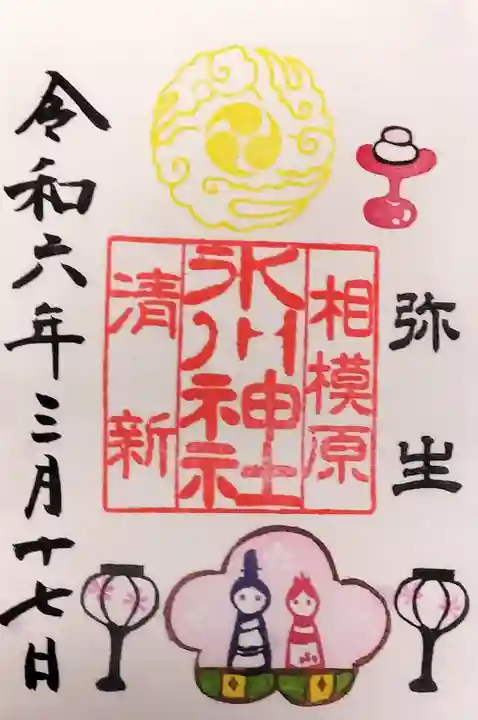 弥生
相模原
氷川神社
清新
令和六年三月十七日